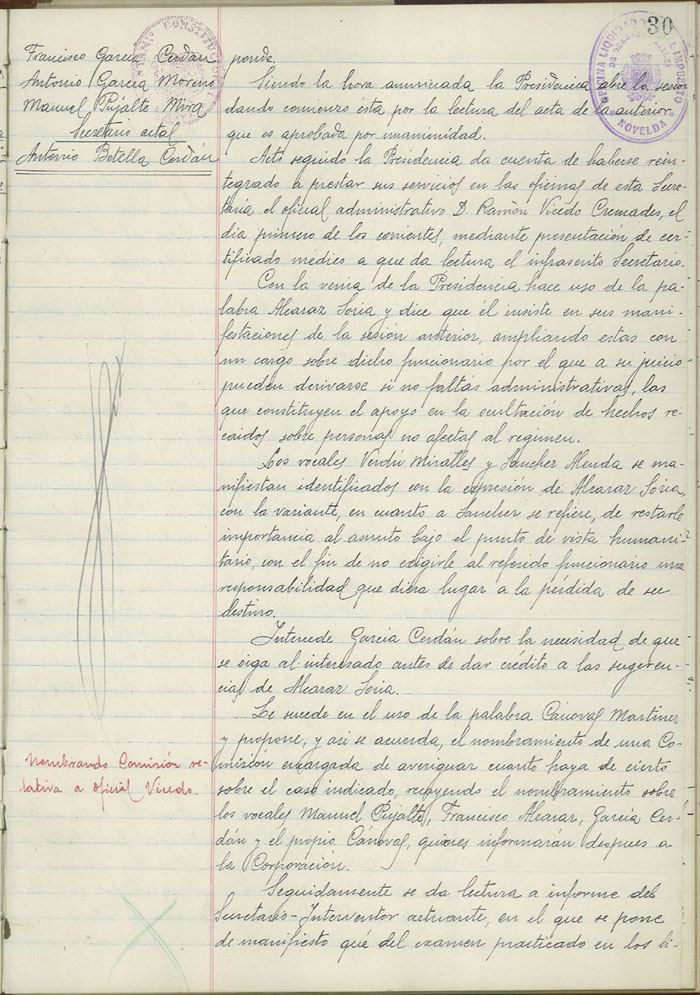 30
Francisco García Cerdán
Antonio García Moreno
Manuel Pujalte Mira
Secretario actal
Antonio Botella Cerdán
ponde.
Siendo la hora anunciada la Presidencia abre la sesión
dando comienzo ésta por la lectura del acta de la anterior
que es aprobada por unanimidad.
Acto seguido la Presidencia da cuenta de haberse rein-
tegrado a prestar sus servicios en las oficinas de esta Secre-
taría el oficial administrativo D. Ramón Vicedo Cremades, el
día primero de los corrientes, mediante presentación de cer-
tificado medico a que da lectura el infrascrito Secretario.
Con la venia de la Presidencia hace uso de la pa-
labra Alcaraz Soria y dice que él insiste en sus mani-
festaciones de la sesión anterior, ampliando estas con
un cargo sobre dicho funcionario por el que a su juicio
pueden derivarse si no faltas administrativas, las
que constituyen el apoyo en la ocultación de hechos re-
caidos sobre personas no afectas al regimen.
Los vocales Verdú Miralles y Sánchez Alenda se ma-
nifiestan identificados con la expresión de Alcaraz Soria,
con la variante, en cuanto a Sanchez se refiere, de restarle
importancia al asunto bajo el punto de vista humani-
tario, con el fin de no exigirle al referido funcionario una
responsabilidad que diera lugar a la pérdida de su
destino.
Intercede García Cerdán sobre la necesidad de que
se oiga al interesado antes de dar crédito a las sugeren-
cias de Alcaraz Soria.
Le sucede en el uso de la palabra Cánovas Martinez
y propone, y así se acuerda, el nombramiento de una Co-
misión encargada de averiguar cuanto haya de cierto
sobre el caso indicado, recayendo el nombramiento sobre
los vocales Manuel Pujalte, Francisco Alcaraz, García Cer-
dán y el propio Cánovas, quienes informarán despues a
la Corporación.
Nombrando Comisión re-
lativa a oficial Vicedo.
Seguidamente se da lectura a informe del
Secretario-Interventor actuante, en el que se pone
de manifiesto qué del examen practicado en los li-
NOVELDA